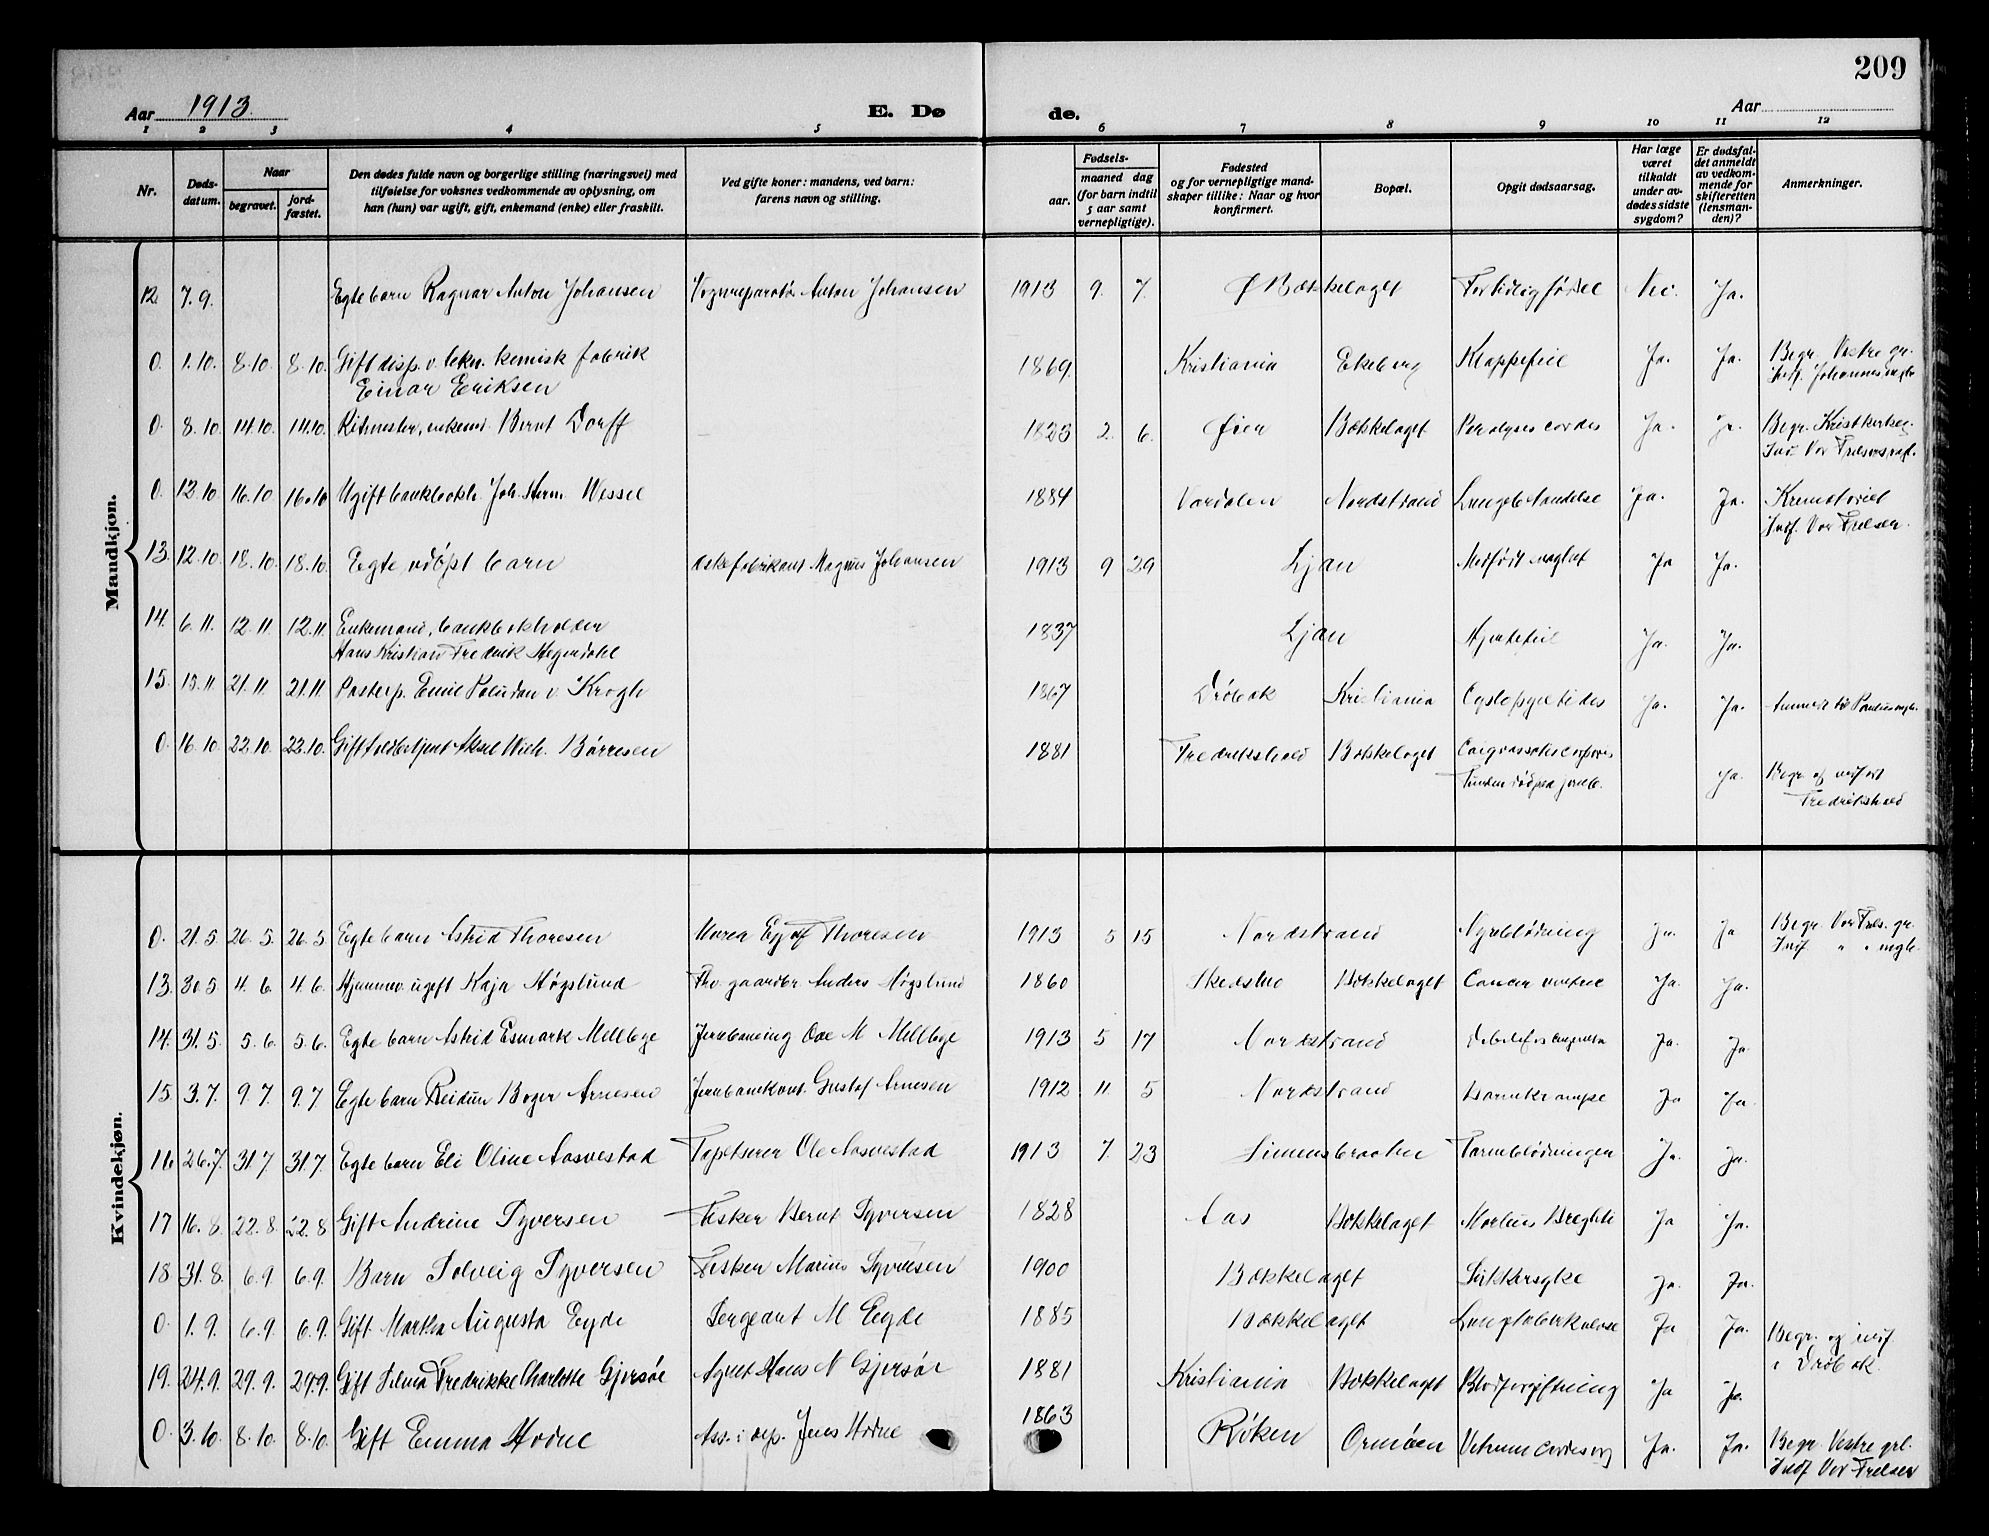 209
Aar 1913. E. Dø de. Aar
1 2 3 4 5 6 7 8 9 10 11 12
Nr. Døds-datum. Naar begravet. jord-fæstet. Den dødes fulde navn og borgerlige stilling (næringsvei) med tilføielse for voksnes vedkommende av oplysning, om han (hun) var ugift, gift, enkemand (enke) eller fraskilt. Ved gifte koner: mandens, ved barn: farens navn og stilling. Fødsels- aar. maaned dag (for barn indtil 5 aar samt vernepligtige). Fødested og for vernepligtige mand-skaper tillike: Naar og hvor konfirmert. Bopæl. Opgit dødsaarsag. Har læge været tilkaldt under av-dødes sidste sygdom? Er dødsfal-det anmeldt av vedkom-mende for skifteretten (lensman-den)? Anmerkninger.
Mandkjøn.
12. 7.9. Egte barn Ragnar Anton Johansen Vognreparatør Anton Johansen 1913 9. 7. Ø Bækkelaget For tidlig fødsel Nei. Ja.
0. 1.10. 8.10 8.10. Gift disp. v. kemisk fabrik 1869 Kristiania Ekeberg Klappefeil Ja. Ja. Begr. Vestre gr.
Einar Eriksen Indf. Johannes mgb.
0. 8.10 14.10. 14.10. Ritmester, enkem. Bernt Dorff 1825 2. 6. Øien Bækkelaget Paralyses cordis Ja. Ja. Begr. Kristkirkeg.
Indf Vor Frelsers
0. 12.10 16.10 16.10 Ugift bankbokh. Joh. Herm. Wessel 1884 Værdalen Nordstrand Lungebetændelse Ja. Ja. Krematoriet
Indf. Vor Frelser.
13. 12.10. 18.10. 18.10. Egte, udøpt barn Æskefabrikant Magnus Johansen 1913 9 29 Ljan Medfødt Ja Ja.
14. 6.11. 12.11. 12.11. Enkemand, bankbokholder 1837 Ljan Hjertefeil Ja. Ja.
Hans Kristian Fredrik
15. 15.11 21.11. 21.11 Pastor p. Emil Paludan v. Krogh 1867 Drøbak Kristiania Ja. Ja.
0. 16.10 22.10. 22.10. Gift Aksel Wilh. Børresen 1881 Fredrikshald Bækkelaget corporis
Funden død paa jernb. Ja. Begr. og indført
Fredrikshald
Kvindekjøn.
0. 21.5 26.5. 26.5 Egte barn Astrid Thoresen Thoresen 1913 5 15 Nordstrand Nyreblødning Ja. Ja Begr. Vor Frels. gr.
Indf. " " mgb.
13. 30.5 4.6. 4.6. Hjemmev. ugift Kaja Høgslund Fhv gaardbr Anders Høgslund 1860 Skedsmo Bækkelaget Cancer Ja. Ja.
14. 31.5. 5.6. 5.6. Egte barn Astrid Esmark Mellbye Jernbaneing Ove M Mellbye 1913 5 17 Nordstrand Ja. Ja
15 3.7. 9.7. 9.7 Egte barn Reidun Boger Arnesen Jernbanekont. Gustaf Arnesen 1912 11. 5 Nordstrand Barnekrampe Ja Ja.
16 26.7. 31.7. 31.7. Egte barn Eli Oline Aasvestad Tapetserer Ole Aasvestad 1913 7. 23 Simensbraaten Tarmblødninger Ja. Ja.
17 16.8. 22.8. 22.8 Gift Andrine Syversen Fisker Bernt Syversen 1828 Aas Bækkelaget Morbus Brightii Ja Ja.
18 31.8. 6.9. 6.9. Barn Solveig Syversen Fisker Marius Syversen 1900 Bækkelaget Sukkersyke Ja. Ja.
0. 1.9. 6.9. 6.9. Gift Martha Augusta Eyde Sergeant M Eyde 1885 Bækkelaget Lungetuberkulose Ja Ja. Begr. og indf
i Drøbak.
19. 24.9. 29.9. 29.9. Gift Selma Fredrikke Charlotte Gjersøe Agent Hans N Gjersøe 1881 Kristiania Bækkelaget Blodforgiftning Ja Ja.
0. 3.10. 8.10. 8.10. Gift Emma Hovne Ass. i dep. Jens Hovne 1863 Røken Ormøen Vitium cordis org Ja. Ja. Begr. Vestre grl.
Indf Vor Frelser